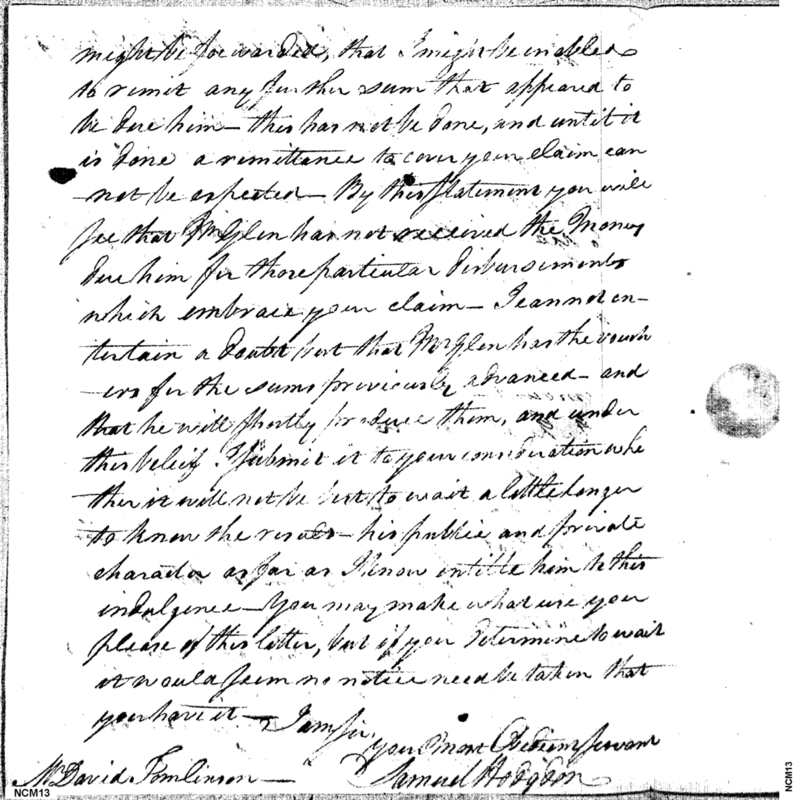 might be forwarded, that I might be enabled
to remit any further sum that appeared to
be due him — this has not be done, and until it
is done a remittance to cover your claim can
not be expected — By this statement you will
see that Mr Glen has not received the Money
due him for those particular disbursements
which embrace your claim — I cannot en-
tertain a doubt but that Mr Glen has the vouch
-ers for the sums previously advanced — and
that he will shortly produce them, and under
this beleif I submit it to your consideration whe
ther it will not be best to wait a little longer
to know the result — his public and private
character as far as I know entitle him to this
indulgence — You may make what use you
please of this letter, but if you determine to wait
it would seem no notice need be taken that
you have it — I am Sir,
your most Obedient servant
Mr David Tomlinson — Samuel Hodgdon
NCM13
NCM13